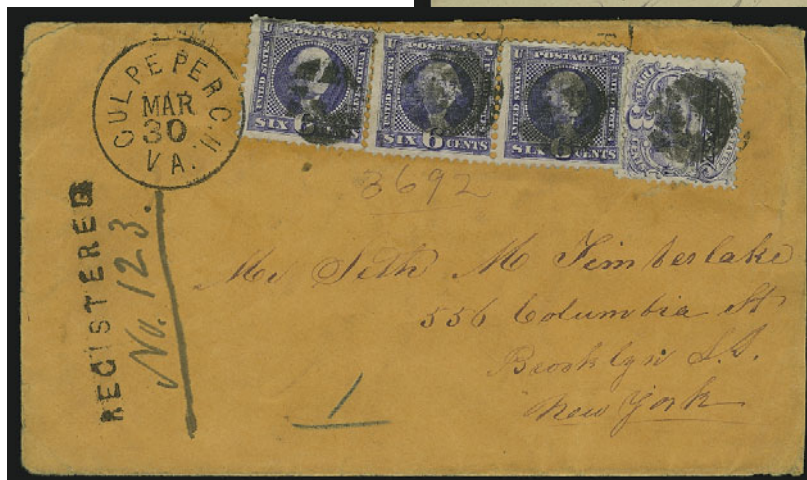 CULPEPER C.H.
MAR
30
VA.
U POSTAGE S
UNITED STATES
SIX 6 CENTS
U POSTAGE S
UNITED STATES
SIX 6 CENTS
U POSTAGE S
UNITED STATES
SIX 6 CENTS
3
REGISTERED
No. 123.
3692
Mr Seth M Timberlake
556 Columbia St
Brooklyn L.I.
New York
1